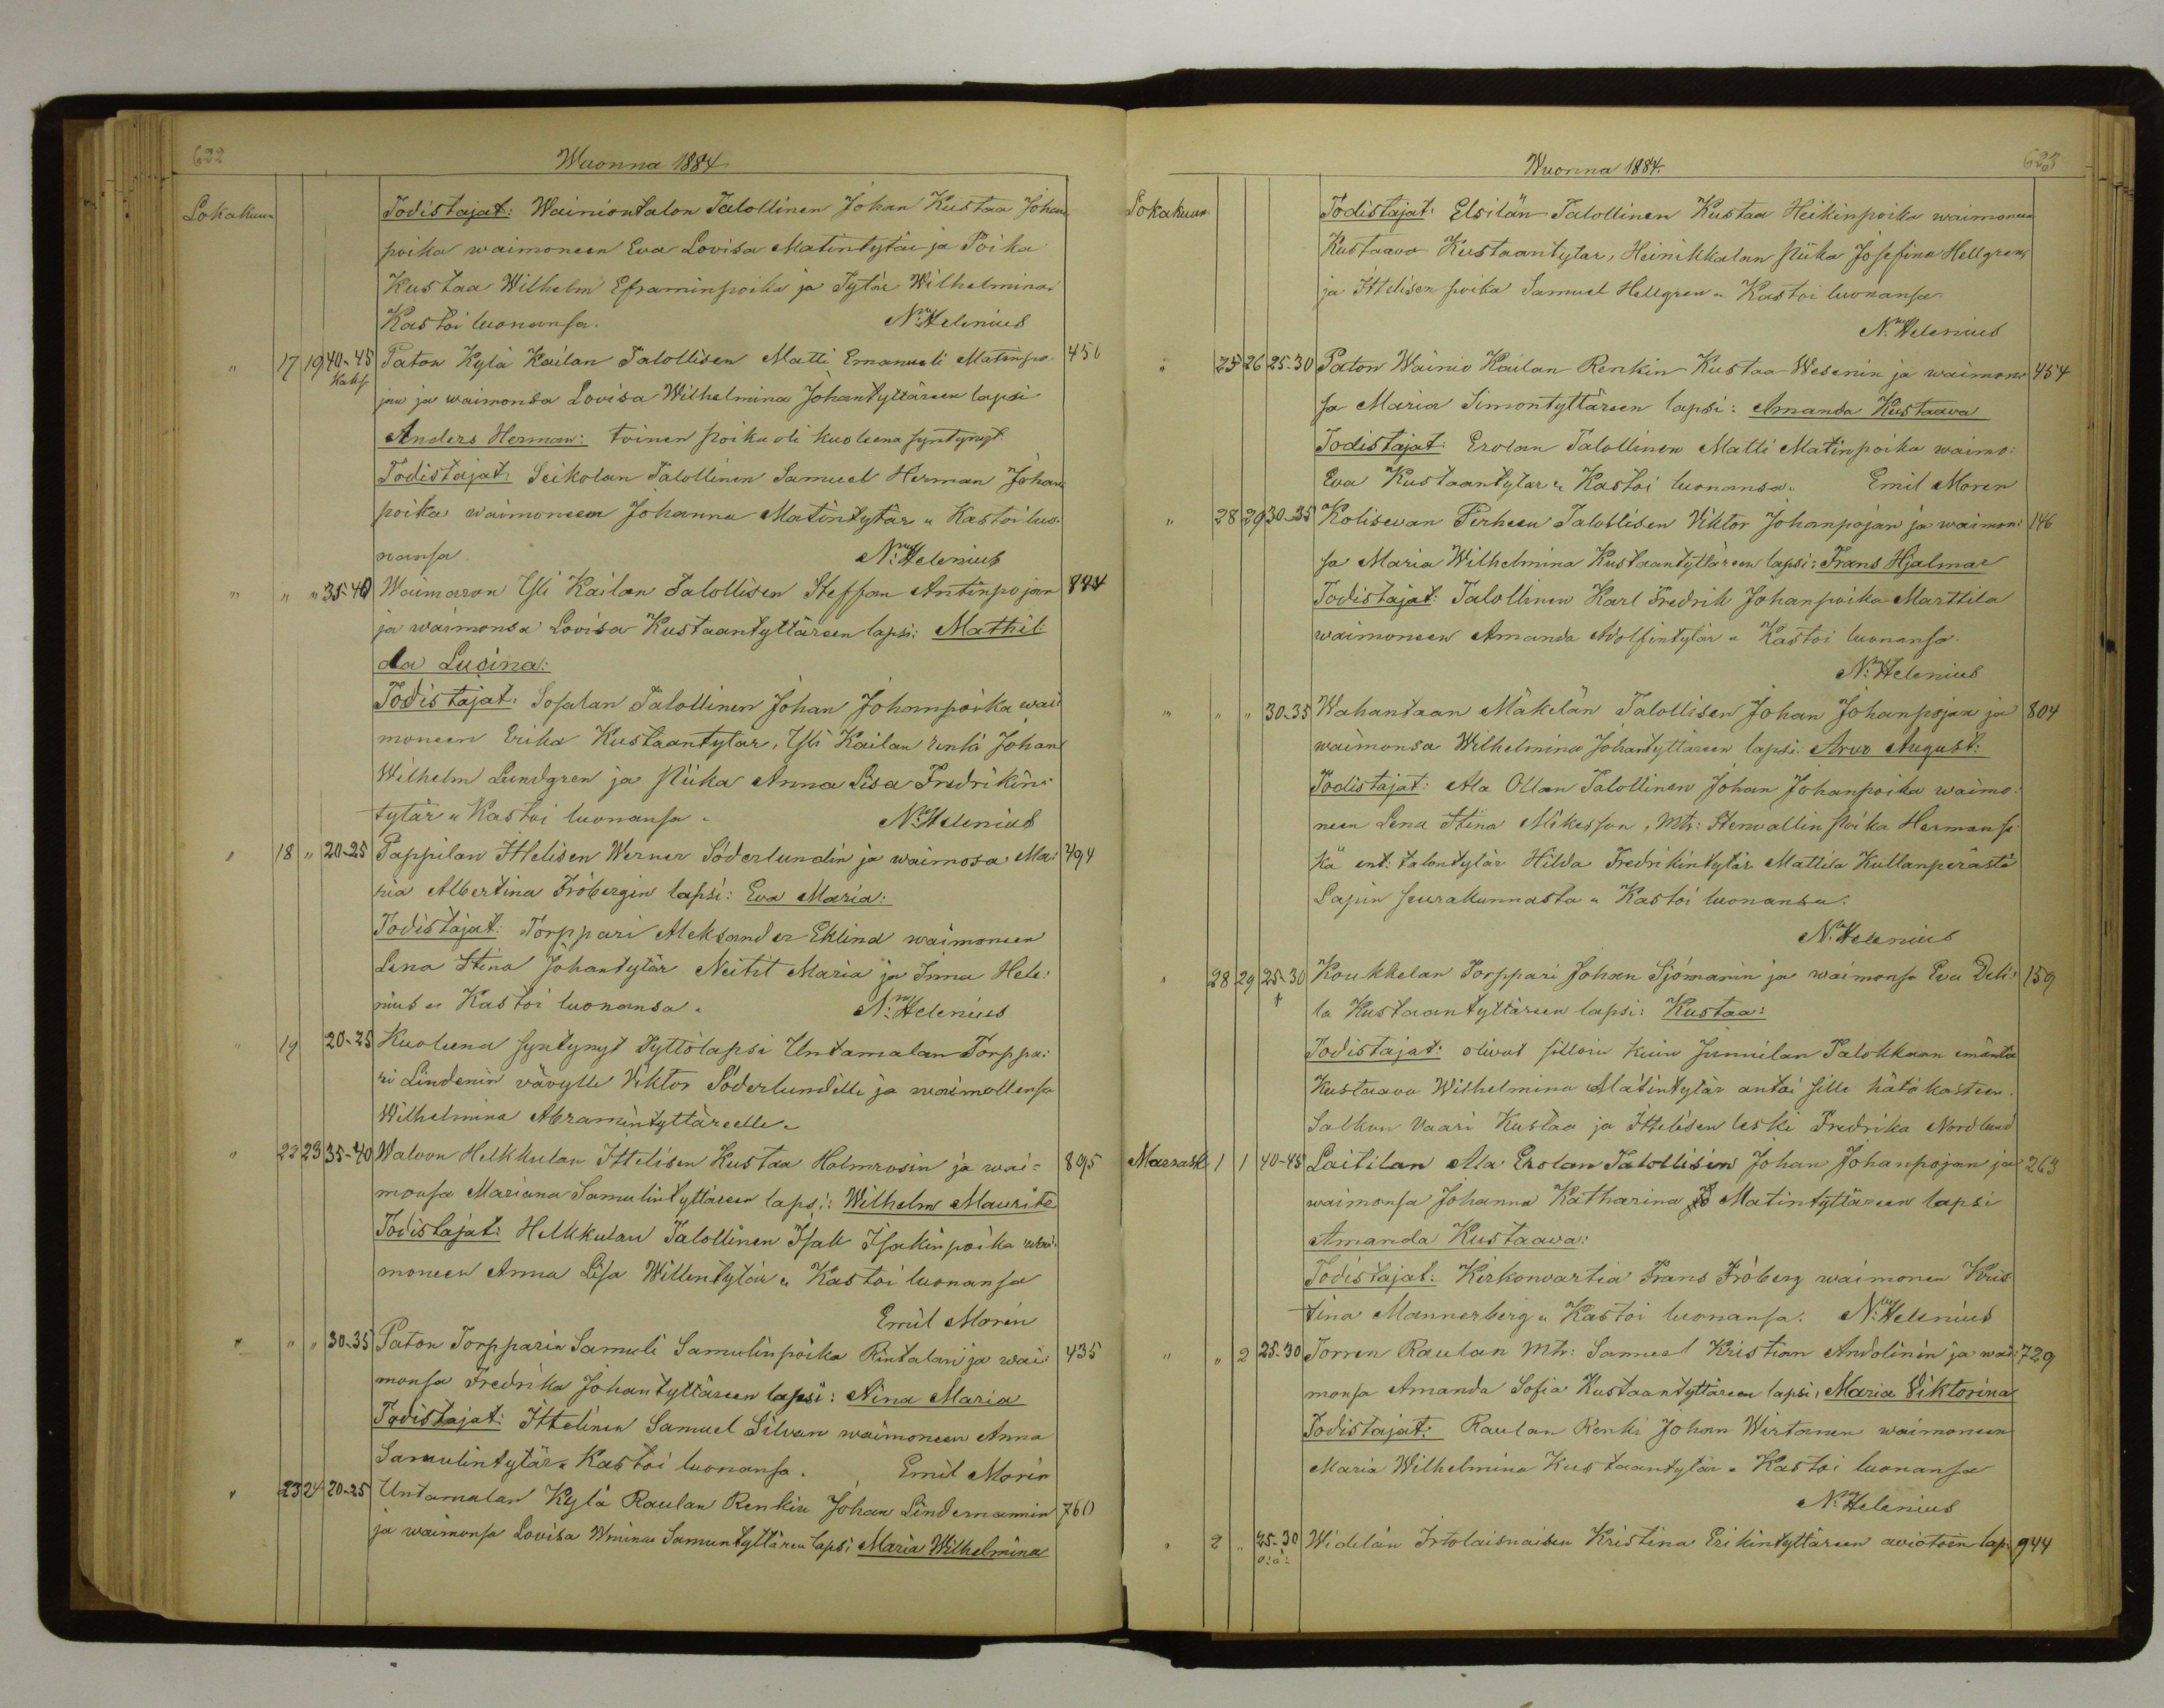 622
Wuonna 1884
Lokakuun
Todistajat: Wainiontalon Talollinen Johan Kustaa Johan
poika waimoneen Eva Lovisa Matintytär ja Poika
Kustaa Wilhelm Eframinpoika ja Tytär Wilhelmina
Kastoi luonansa. N. Helenius
" 17 19 40-45 Paton Kylä Kailan Talollisen Matti Emanueli Matinpo- 456
Kaks
jan ja waimonsa Lovisa Wilhelmina Johantyttären lapsi
Anders Herman: toinen poika oli kuolleena syntynyt.
Todistajat: Seikolan Talollinen Samuel Herman Johan
poika waimoneen Johanna Matintytär " Kastoi luo-
nansa. N. Helenius
" " " 35-40 Waimaron Yli Kailan Talollisen Steffan Antinpojan 844
ja waimonsa Lovisa Kustaantyttäreen lapsi: Mathil:
da Lusina:
Todistajat: Sopalan Talollinen Johan Johanpoika wai:
moneen Erika Kustaantytär, Yli Kailan renki Johan
Wilhelm Lundgren ja piika Anna Lisa Fredrikin:
tytär " Kastoi luonansa " N. Helenius
" 18 " 20-25 Pappilan Ittelisen Werner Söderlundin ja waimosa Ma: 494
ria Albertina Fröbergin lapsi: Eva Maria:
Todistajat: Torppari Aleksander Eklind waimoneen
Lena Stina Johantytär Neitit Maria ja Inna Hele:
nius " Kastoi luonansa " N. Helenius
" 19 20-25 Kuoleena syntynyt Tyttölapsi Untamalan Torppa:
ri Lindenin vävylle Viktor Söderlundille ja waimollensa
Wilhelmina Abramintyttäreelle "
" 22 23 35-40 Waloon Helkkulan Ittelisen Kustaa Holmrosin ja wai- 895
monsa Mariana Samulintyttäreen lapsi: Wilhelm Maurits
Todistajat: Helkkulan Talollinen Isak Isakinpoika wai:
moneen Anna Lisa Willentytär " Kastoi luonansa
Emil Morén
" " " 30-35 Paton Torpparin Samuli Samulinpoika Rintalan ja wai: 435
monsa Fredrika Johantyttäreen lapsi: Nina Maria
Todistajat: Ittelinen Samuel Silvan waimoneen Anna
Samulintytär " Kastoi luonansa. Emil Morén
" 23 24 20-25 Untamalan Kylä Raulan Renkin Johan Lindemannin 760
ja waimonsa Lovisa Wmina Samuntyttären lapsi Maria Wilhelmina
623
Wuonna 1884.
Lokakuun
Todistajat: Elsilän Talollinen Kustaa Heikinpoika waimoneen
Kustaava Kustaantytar, Heinikkalan piika Josefina Hellgren
ja Ittelisen poika Samuel Hellgren " Kastoi luonansa.
N. Helenius
" 25 26 25-30 Paton Wainio Kailan Renkin Kustaa Wesenin ja waimon 454
sa Maria Simontyttäreen lapsi: Amanda Kustaava
Todistajat: Erolan Talollinen Matti Matinpoika waimo:
Eva Kustaantytar " Kastoi luonansa " Emil Moren
" 28 29 30-35 Kolisevan Perheen Talollisen Viktor Johanpojan ja waimon: 146
sa Maria Wilhelmina Kustaantyttäreen lapsi: Frans Hjalmar
Todistajat: Talollinen Karl Fredrik Johanpoika Marttila
waimoneen Amanda Adolfintytär " Kastoi luonansa.
N. Helenius
" " " 30-35 Wahantaan Mäkelän Talollisen Johan Johanpojan ja 804
waimonsa Wilhelmina Johantyttäreen lapsi: Arvo August:
Todistajat: Ala Ollan Talollinen Johan Johanpoika waimo:
neen Lena Stina Mikesson, Mtr: Stenvallin poika Herman se
kä ent: talontytär Hilda Fredrikintytär Mattila Kullanperästä
Lapin seurakunnasta " Kastoi luonansa.
N. Helenius
" 28 29 25-30 Koukkelan Torppari Johan Sjömanin ja waimonsa Eva Deli: 159
†
la Kustaantyttäreen lapsi: Kustaa:
Todistajat: olivat silloin kuin Junnilan Talokkaan emäntä
Kustaava Wilhelmina Matintytär antoi sille hätä kasteen.
Salkun Vaari Kustaa ja Ittelisen leski Fredrika Nordlund
Marrask. 1 1 40-45 Laitilan Ala Erolan Talollisen Johan Johanpojan ja 263
waimonsa Johanna Katharina Matintyttäreen lapsi
Amanda Kustaava:
Todistajat: Kirkonvartia Frans Fröberg waimoneen Kris
tina Mannerberg " Kastoi luonansa. N. Helenius
" " 2 25-30 Torren Raulan Mtr: Samuel Kristian Andolinin ja wai: 729
monsa Amanda Sofia Kustaantyttäreen lapsi, Maria Viktorina
Todistajat: Raulan Renki Johan Wirtanen waimoneen
Maria Wilhelmina Kustaantytär " Kastoi luonansa
N. Helenius
" 2 " 25-30 Widelän Irtolaisnaisen Kristina Erikintyttäreen aviotoin lap: 944
o:ä: